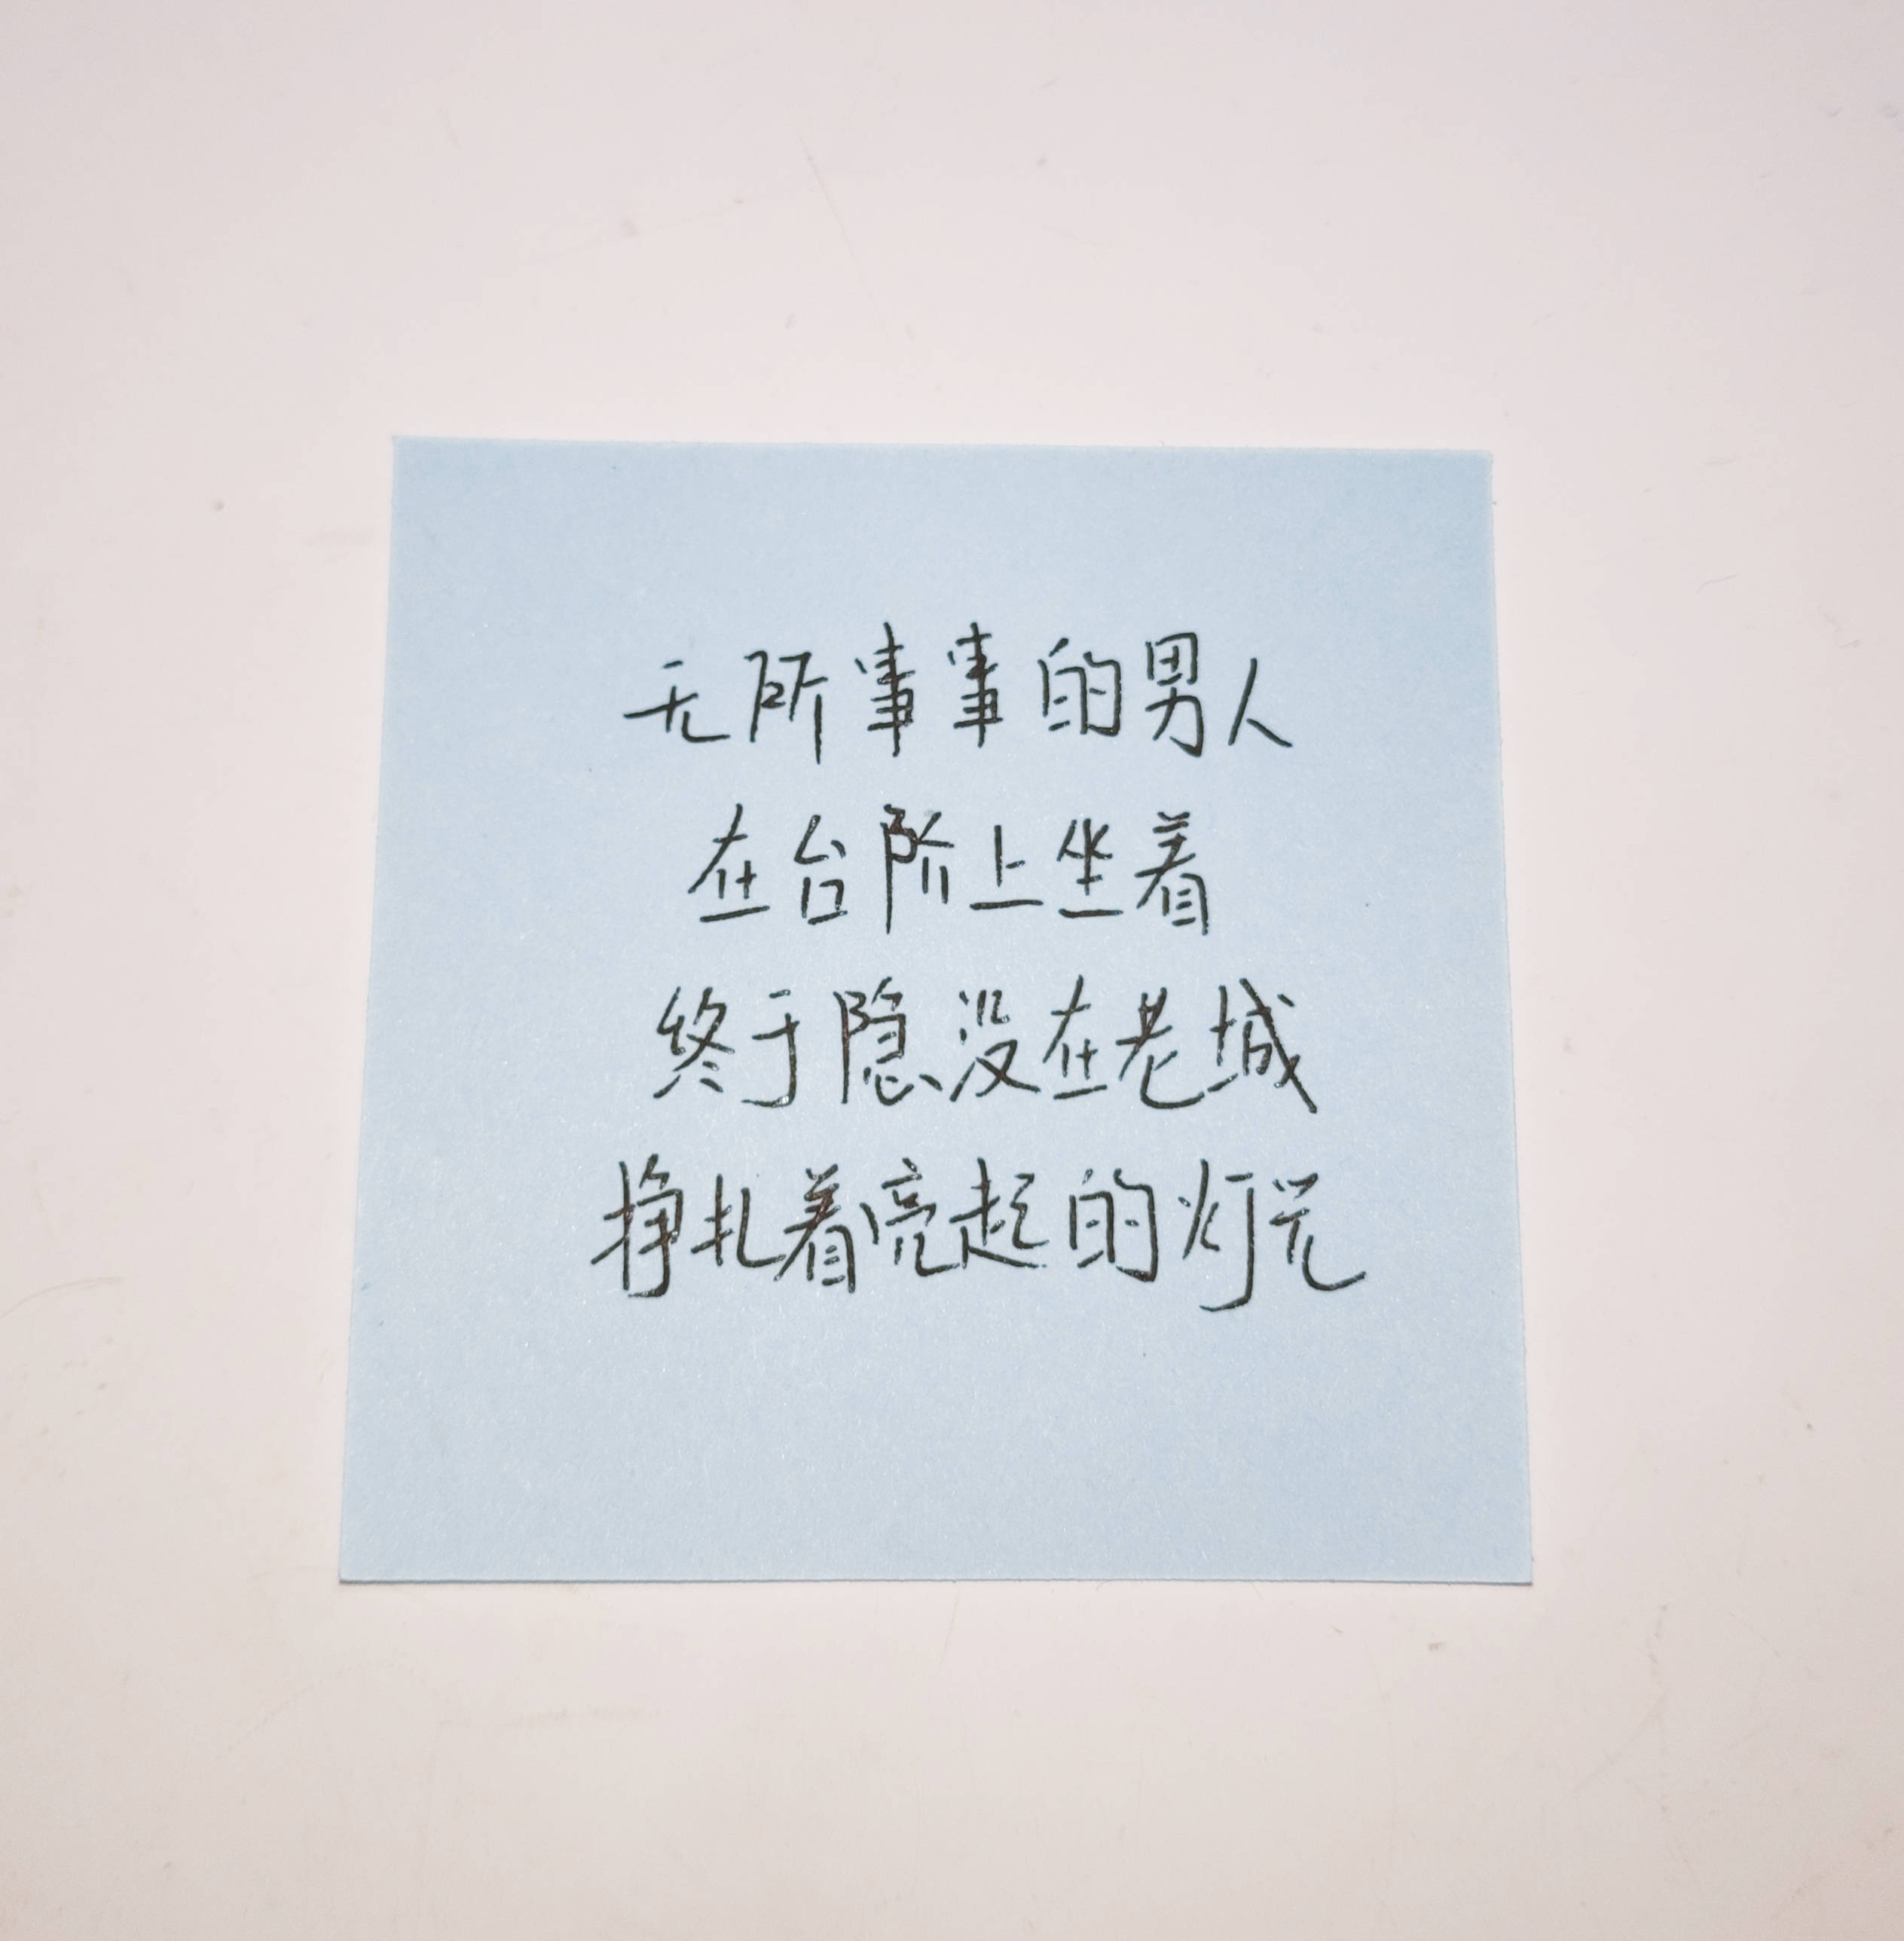 无所事事的男人
在台阶上坐着
终于隐没在老城
挣扎着亮起的灯光